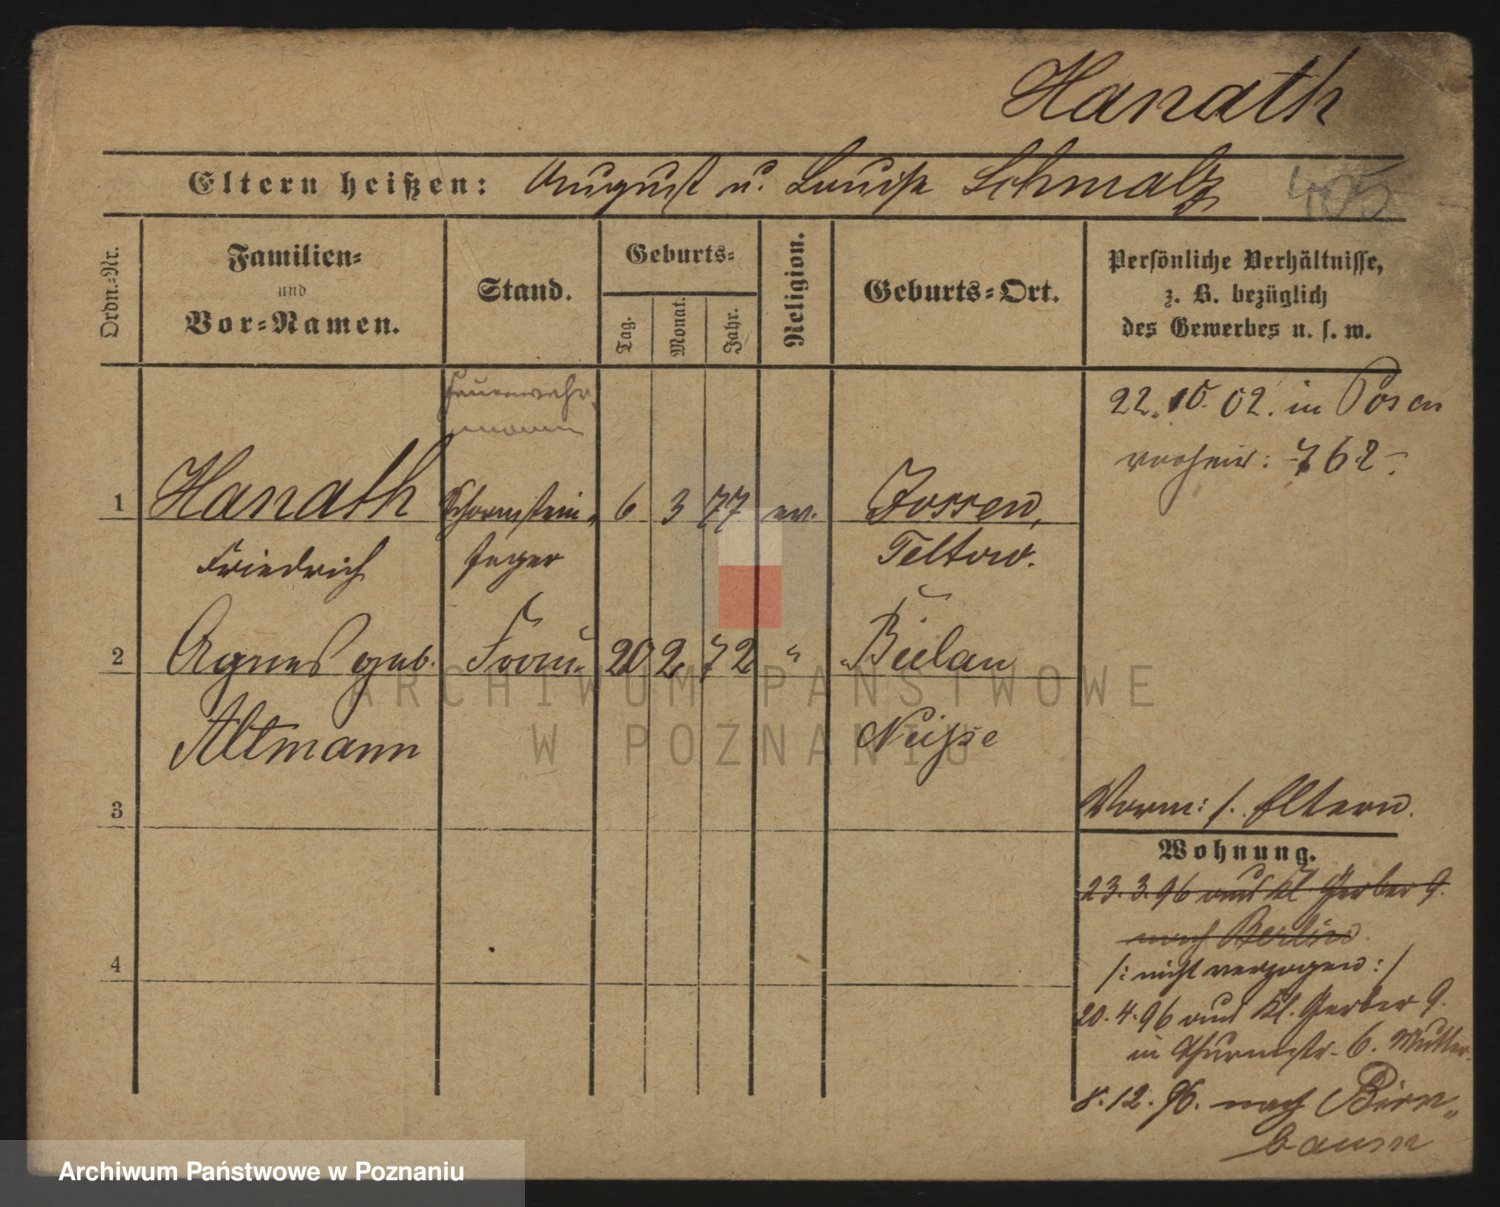 Hanath
Eltern heißen: August u. Louise Schmalz
405
Ordn.-Nr.
Familien-
und
Vor-Namen.
Stand.
Geburts-
Tag.
Monat.
Jahr.
Religion.
Geburts-Ort.
Persönliche Verhältnisse,
z. B. bezüglich
des Gewerbes u. s. w.
Feuerwehr-
mann
22. 10. 02. in Posen
verheir: 762
1 Hanath Schornstein- 6 3 77 ev. Zossen,
Friedrich feger Teltow.
2 Agnes geb. Frau 20 2 72 " Bielau
Altmann Neisse
3
Vorm: /. Eltern.
Wohnung.
23. 3. 96 aus Kl. Gerber 9.
nach Berlin
/: nicht verzogen :/
4
20. 4. 96 aus Kl. Gerber 9.
in Thurmstr. 6. Mutter
8. 12. 96. nach Birn-
baum
ARCHIWUM PAŃSTWOWE
W POZNANIU
Archiwum Państwowe w Poznaniu